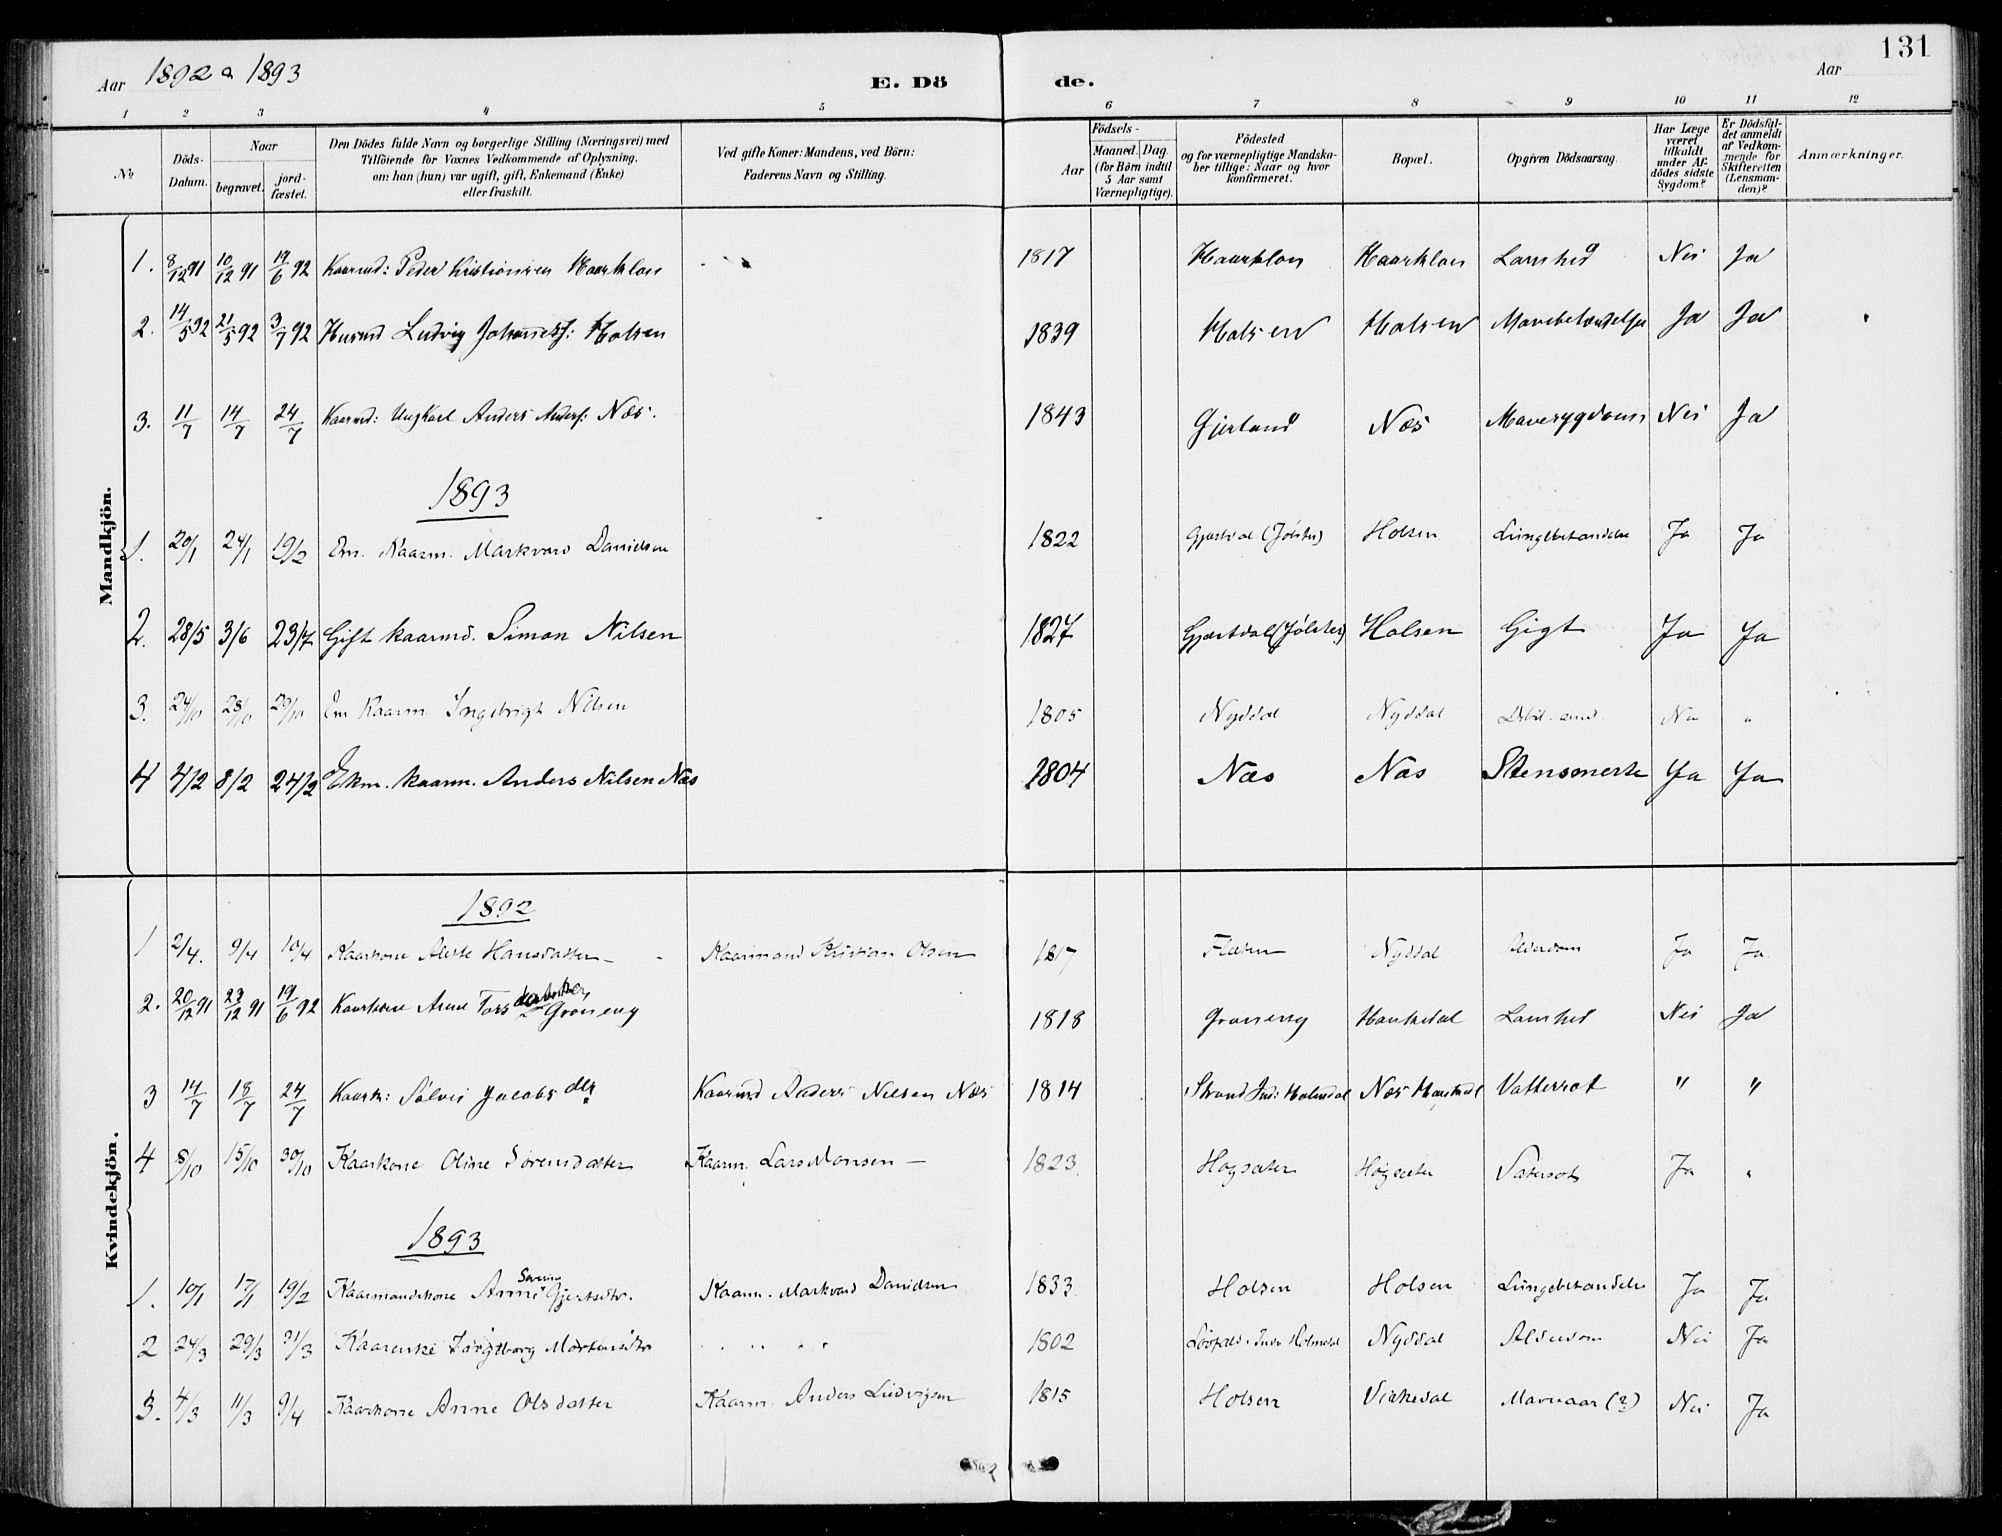 131
Aar 1892 a 1893 E. Dö de. Aar
1 2 3 4 5 6 7 8 9 10 11 12
No
Döds-Datum.
Naar
begravet.
jord-fæstet.
Den Dödes fulde Navn og borgerlige Stilling (Næringsvei) med
Tilföiende for Voxnes Vedkommende af Oplysning,
om han (hun) var ugift, gift, Enkemand (Enke)
eller fraskilt.
Ved gifte Koner: Mandens, ved Börn:
Faderens Navn og Stilling.
Födsels-
Aar
Maaned. Dag.
(for Börn indtil
5 Aar samt
Værnepligtige).
Födested
og for værnepligtige Mandska-
ber tillige: Naar og hvor
konfirmeret.
Bopæl.
Opgiven Dödsaarsag.
Har Læge
været
tilkaldt
under Af-
dödes sidste
Sygdom?
Er Dödsfal-
det anmeldt
af Vedkom-
mende for
Skifteretten
(Lensman-
den)?
Anmærkninger.
Mandkjön.
1. 8/12 91 10/12 91 19/6 92 Kaarmd: Peder Kristiansen Haarklau 1817 Haarklau Haarklau Lamhed Nei Ja
2. 14/5 92 21/5 92 3/7 92 Husmd Ludvig Johannesf: Holsen 1839 Holsen Holsen Ja Ja
3. 11/7 14/7 24/7 Kaarmd: Ungkarl Anders Andersf: Næs. 1843 Gjerland Næs Mavesygdom Nei Ja
1893
1. 20/1 24/1 19/2 Em. Kaarm. Markvard Danielsen 1822 (Jølster) Holsen Lungebetændelse Ja Ja
2. 28/5 3/6 23/7 Gift kaarmd. Simon Nilsen 1827 Gjæstdal (Jølster) Holsen Gigt Ja Ja
3. 24/10 28/10 29/10 Em Kaarm Ingebrigt Nilsen 1805 Nyddal Nyddal Nei "
4 4/2 8/2 24/2 Ekm. kaarm. Anders Nilsen Næs 1804 Næs Næs Stensmerte Ja Ja
Kvindekjön.
1892
1 2/4. 9/4 10/4 Kaarkone Hansdatter - Kaarmand Kristian Olsen 1817 Nyddal Alderdom Ja Ja
2. 20/12 91 23/12 91 19/6 92 Kaarkone Anne Tors datter Graneng 1818 Graneng Lamhed Nei Ja
3 14/7 18/7 24/7 Kaark: Sølvei Jacobs dtr Kaarmd Anders Nilsen Næs 1814 Strand Ind: Holmdal Næs Vattersot " "
4 8/10 15/10 30/10 Kaarkone Oline Sørensdatter Kaarm. Lars Monsen - 1823 Høgsæter Høgsæter Vatersot Ja "
1893
1. 10/1 17/1 19/2 Kaarmandskone Anne Severine Gjertsdtr. Kaarm. Markvard Danielsen 1833 Holsen Holsen Lungebetændelse Ja Ja
2 24/3 29/3 31/3 Kaarenke Ingeborg Mortensdtr 1802 Nyddal Alderdom Nei Ja
3. 4/3 11/3 9/4 Kaarkone Anne Olsdatter Kaarm. Anders Ludvigsen 1815 Holsen Mavesaar (?) Nei Ja